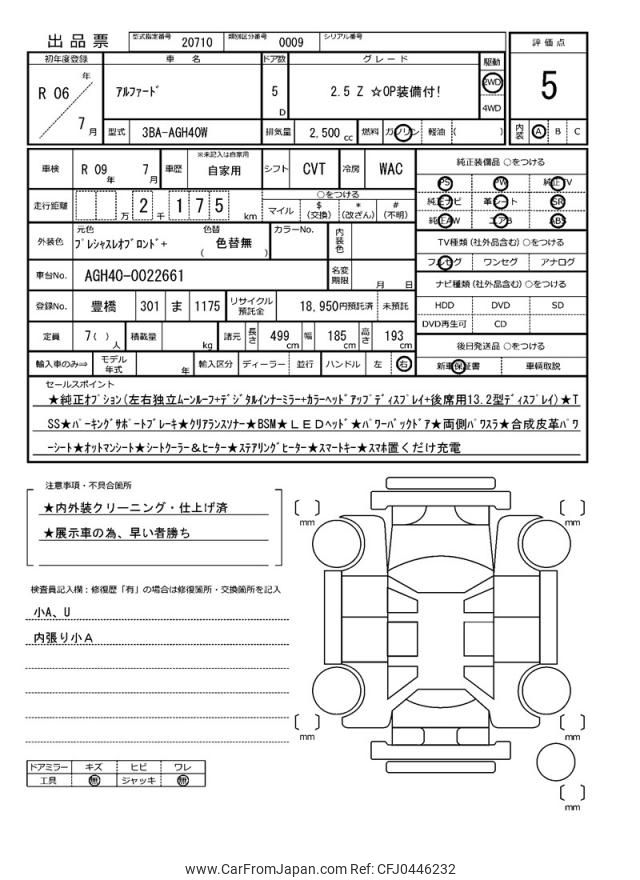 出品票 型式指定番号 20710 類別区分番号 0009 シリアル番号
評価点
5
内装 A B C
初年度登録 車名 ドア数 グレード 駆動
R 06 年 7 月
アルファード 5 D 2.5 Z ☆OP装備付! 2WD 4WD
型式 3BA-AGH40W 排気量 2,500 cc 燃料 ガソリン 軽油 ( )
車検 R 09 年 7 月 車歴 ※未記入は自家用 自家用 シフト CVT 冷房 WAC
走行距離 万 2 千 1 7 5 km
○をつける
マイル $(交換) *(改ざん) #(不明)
外装色 元色 プレシャスレオブロンド+ 色替 ( 色替無 ) カラーNo. 内装色
車台No. AGH40-0022661 名変期限 月 日
登録No. 豊橋 301 ま 1175 リサイクル預託金 18,950円預託済 未預託
定員 7( )人 積載量 kg 諸元 長さ 499 cm 幅 185 cm 高さ 193 cm
輸入車のみ⇒ モデル年式 年 輸入区分 ディーラー 並行 ハンドル 左 右
純正装備品 ○をつける
PS PW 純正TV
純正ナビ 革シート SR
純正AW エアB ABS
TV種類 (社外品含む) ○をつける
フルセグ ワンセグ アナログ
ナビ種類 (社外品含む) ○をつける
HDD DVD SD
DVD再生可 CD
後日発送品 ○をつける
新車保証書 車輌取説
セールスポイント
★純正オプション(左右独立ムーンルーフ+デジタルインナーミラー+カラーヘッドアップディスプレイ+後席用13.2型ディスプレイ)★T
SS★パーキングサポートブレーキ★クリアランスソナー★BSM★LEDヘッド★パワーバックドア★両側パワスラ★合成皮革パワ
ーシート★オットマンシート★シートクーラー&ヒーター★ステアリングヒーター★スマートキー★スマホ置くだけ充電
注意事項・不具合箇所
★内外装クリーニング・仕上げ済
★展示車の為、早い者勝ち
検査員記入欄:修復歴「有」の場合は修復箇所・交換箇所を記入
小A、U
内張り小A
ドアミラー キズ ヒビ ワレ
工具 無 ジャッキ 無
[ ] mm [ ] mm
[ ] mm [ ] mm
[ ] mm
www.CarFromJapan.com Ref: CFJ0446232